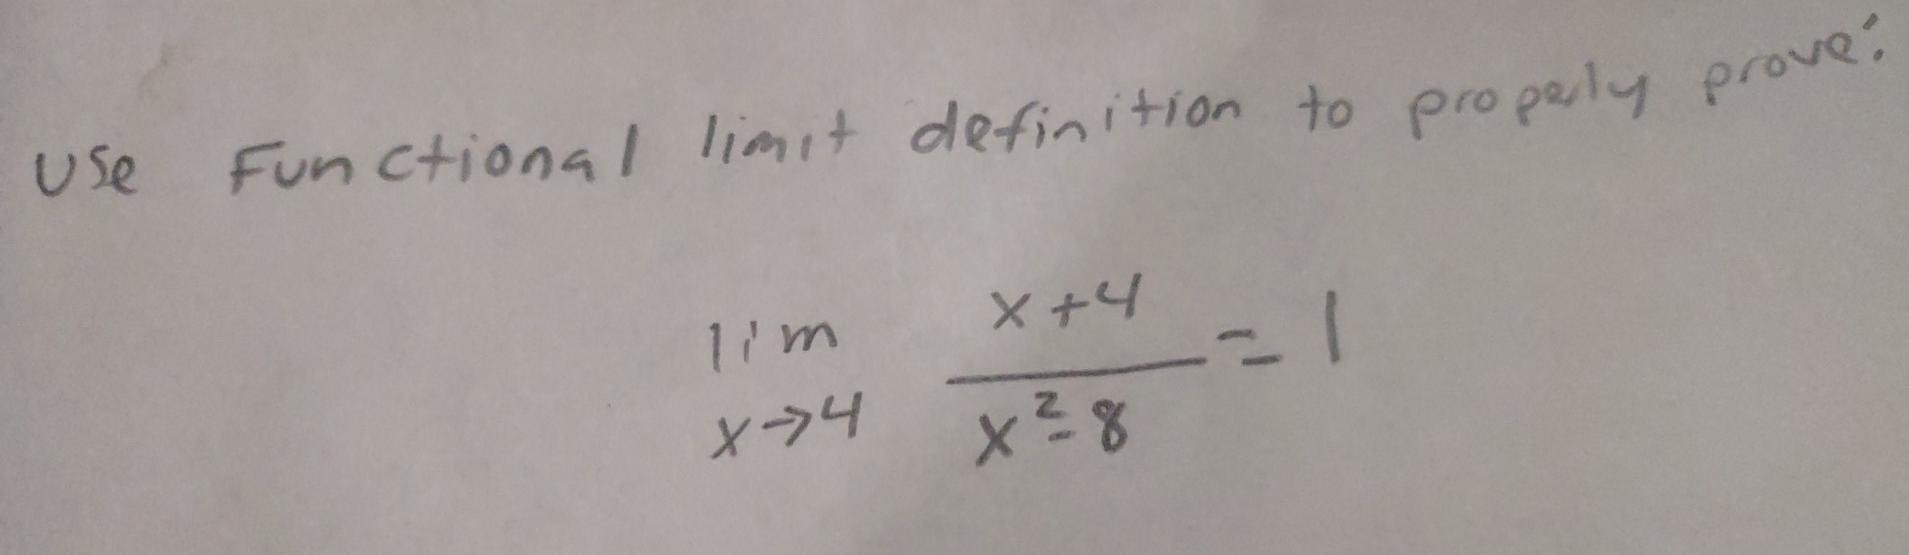 Use Functional limit definition to properly prove:
lim x→4 x+4 / x²-8 = 1